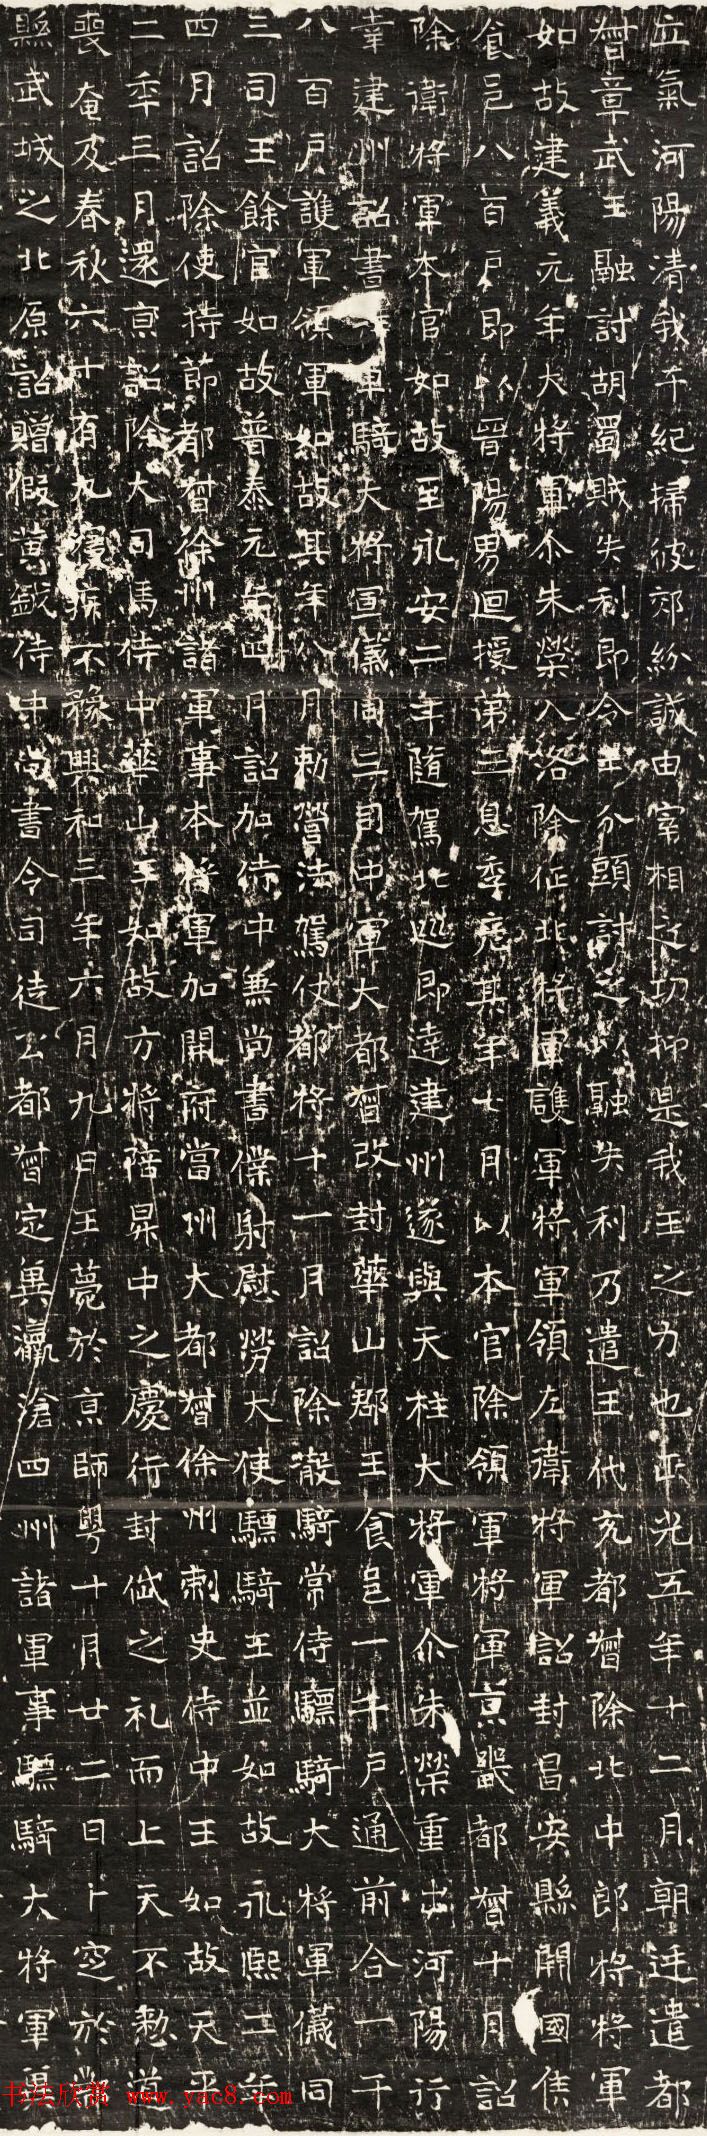 立氣河陽清我千紀掃彼郊紛誠由宰相之切抑是我王之力也正光五年十二月朝廷遣都
督章武王融討胡蜀賊失利即令王分頭討之以融失利乃遣王代充都督除北中郎將將軍
如故建義元年大將軍尒朱榮入洛除征北將軍護軍將軍領左衛將軍詔封昌安縣開國侯
食邑八百戶即以晉陽男迴授第三息季彥其年七月以本官除領軍將軍京畿都督十月詔
除衛將軍本官如故至永安二年隨駕北巡即達建州遂與天柱大將軍尒朱榮重出河陽行
幸建州詔書 車騎大將軍儀同三司中軍大都督改封華山郡王食邑一千戶通前合一千
八百戶護軍領軍如故其年八月勅營法駕使都將十一月詔除散騎常侍驃騎大將軍儀同
三司王餘官如故普泰元年四月詔加侍中兼尚書僕射慰勞大使驃騎王並如故永熙二年
四月詔除使持節都督徐州諸軍事本將軍加開府當州大都督徐州刺史侍中王如故天平
二年三月還京詔除大司馬侍中華山王如故方將陪昇中之慶行封侂之礼而上天不憗道
喪奄及春秋六十有九寢疾不豫興和三年六月九日王薨於京師粵十月廿二日卜窆於鄴
縣武城之北原詔贈假黃鉞侍中尚書令司徒公都督定冀瀛滄四州諸軍事驃騎大將軍
书法欣赏 www.yac8.com